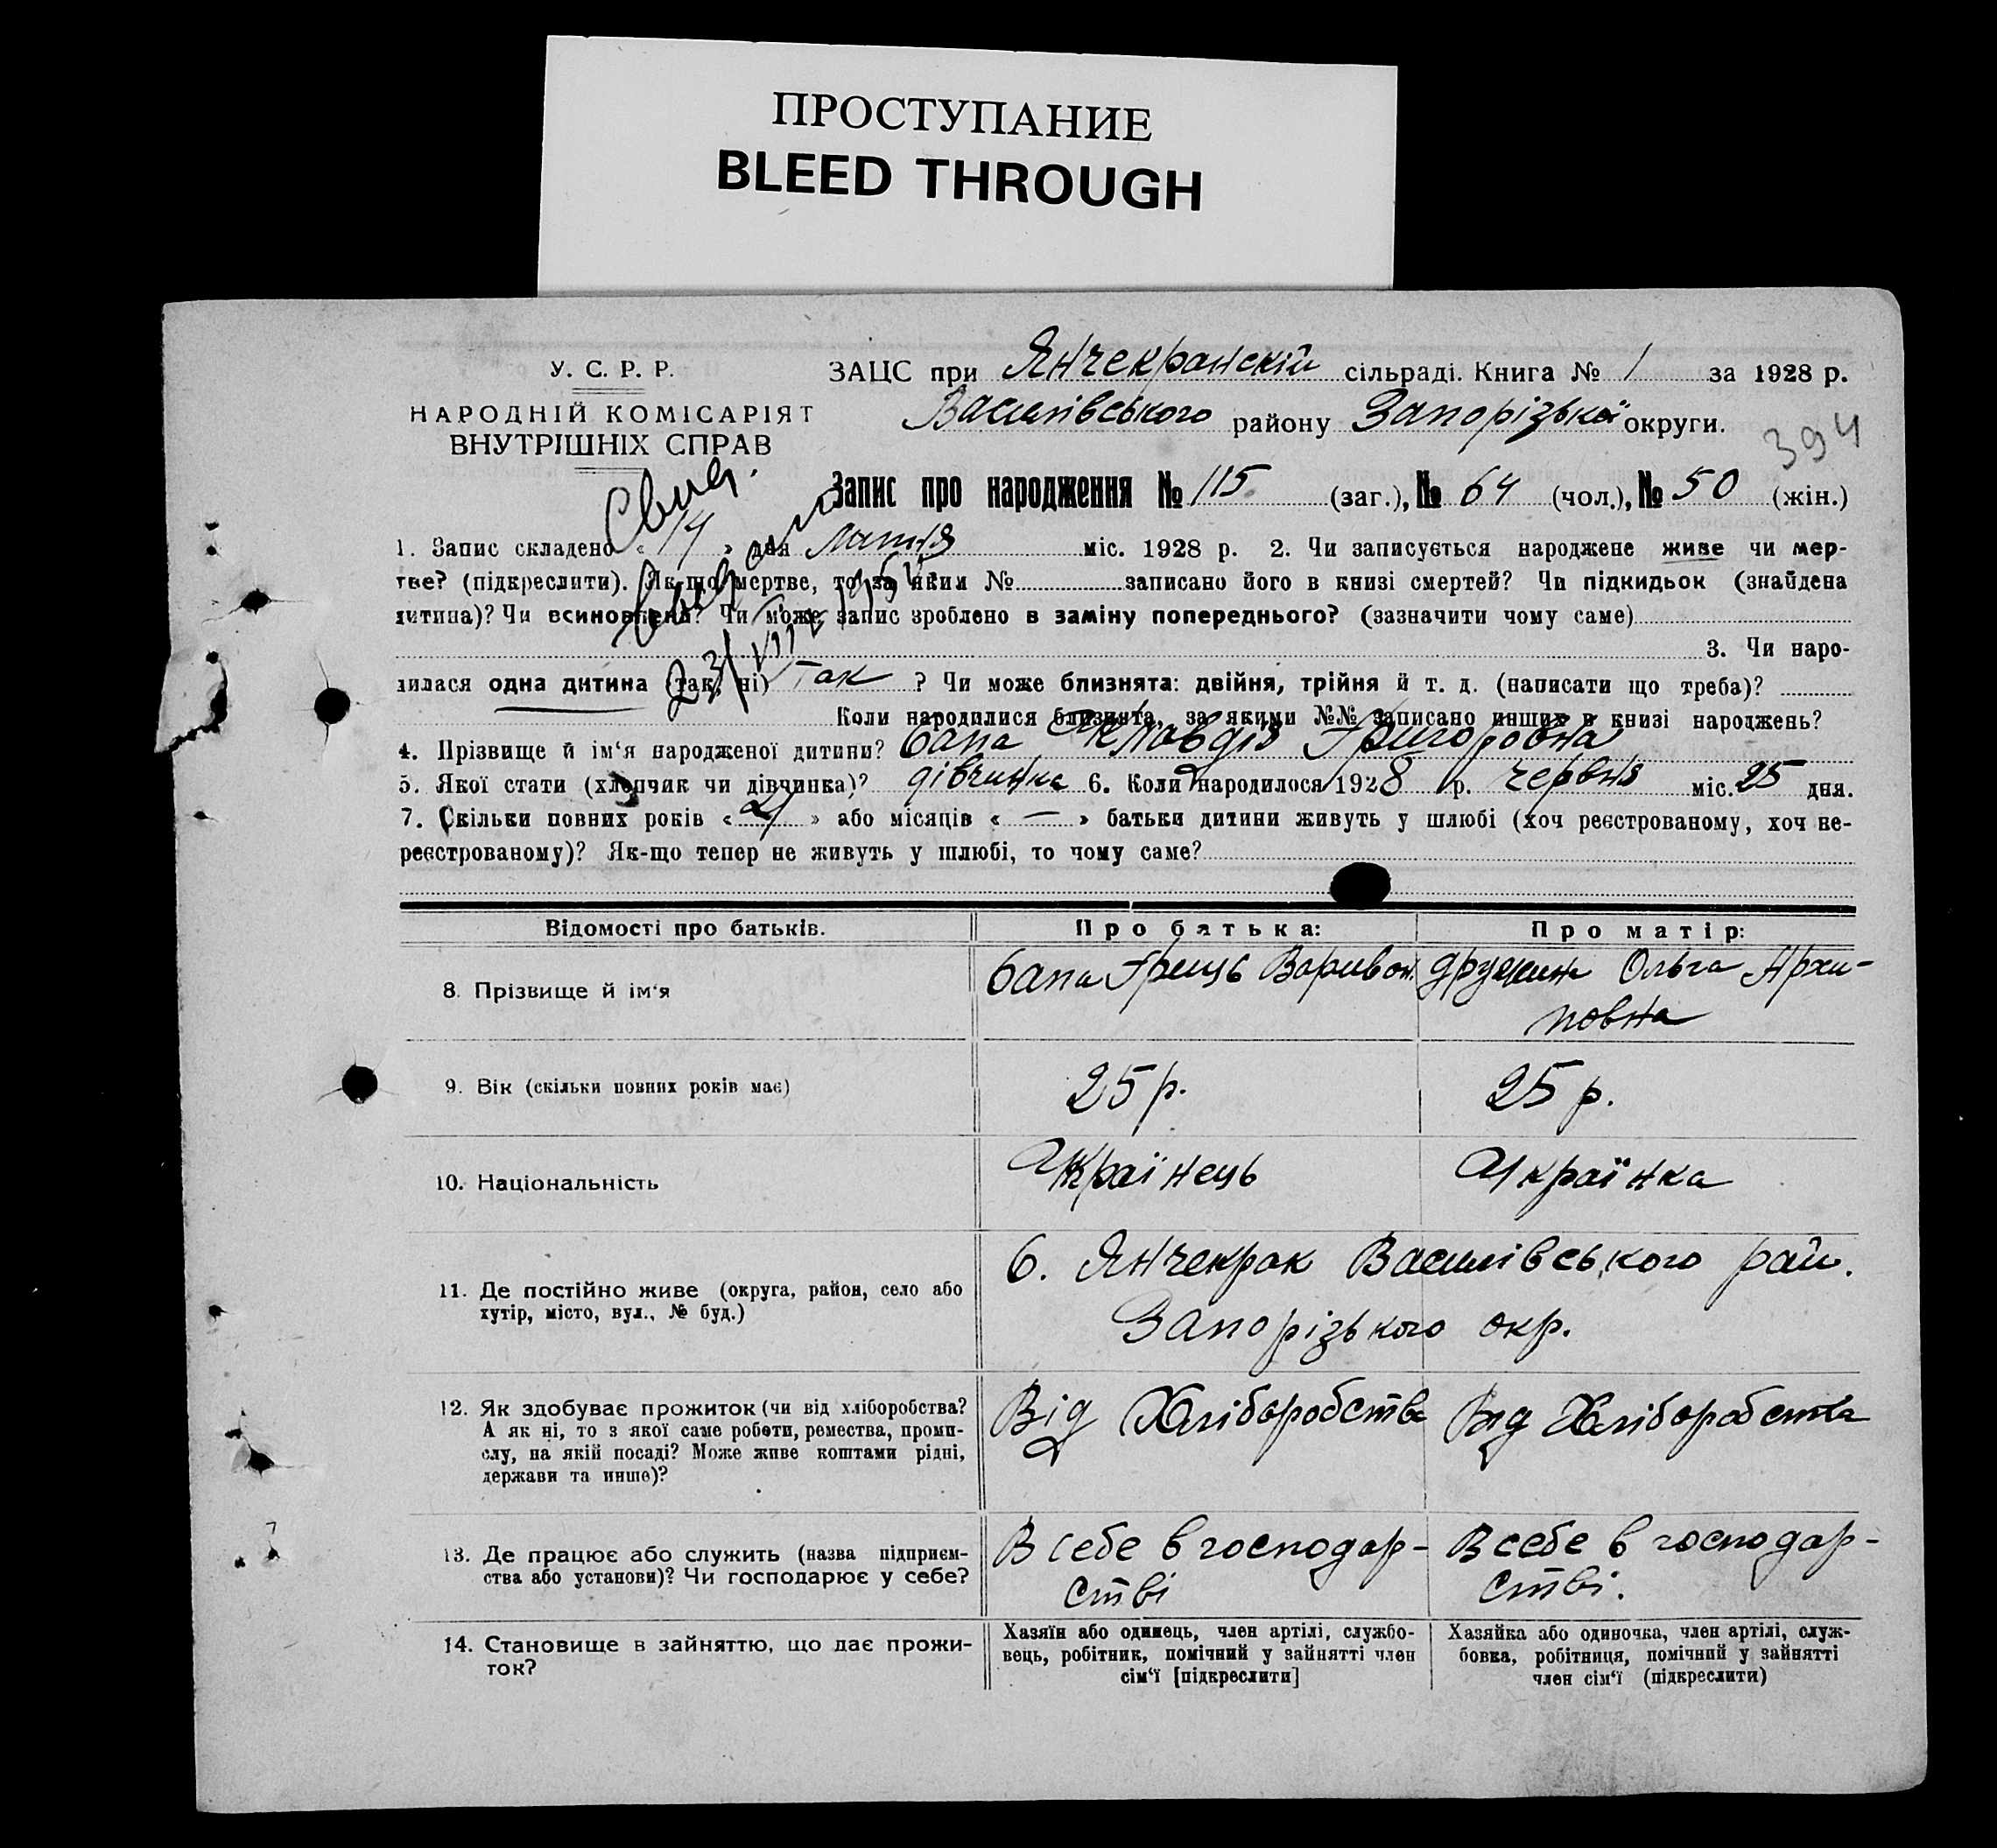 ПРОСТУПАНИЕ
BLEED THROUGH
У. С. Р. Р.
НАРОДНІЙ КОМІСАРІЯТ
ВНУТРІШНІХ СПРАВ
ЗАЦС при Янчекранскій сільраді. Книга № 1 за 1928 р.
Василівського району Запорізької округи.
394
Запис про народження № 115 (заг.), № 64 (чол.), № 50 (жін.)
Свид.
23/VIII
1. Запис складено « 14 » дня міс. 1928 р. 2. Чи записується народжене живе чи мер-
тве? (підкреслити). Як-що мертве, то за яким № записано його в книзі смертей? Чи підкидьок (знайдена
дитина)? Чи всиновлена? Чи може запис зроблено в заміну попереднього? (зазначити чому саме)
3. Чи наро-
дилася одна дитина (так, ні) Так ? Чи може близнята: двійня, трійня й т. д. (написати що треба)?
Коли народилися близнята, за якими №№ записано инших в книзі народжень?
4. Прізвище й ім‘я народженої дитини? Бапа Клавдія Григоровна
5. Якої стати (хлопчик чи дівчинка)? дівчинка 6. Коли народилося 1928 р. червня міс. 25 дня.
7. Скільки повних років « 4 » або місяців « — » батьки дитини живуть у шлюбі (хоч реєстрованому, хоч не-
реєстрованому)? Як-що тепер не живуть у шлюбі, то чому саме?
Відомості про батьків. Про батька: Про матір:
8. Прізвище й ім‘я Бапа Гриць Варивон. дружина Ольга Архи-
повна
9. Вік (скільки повних років має) 25 р. 25 р.
10. Національність Українець Українка
11. Де постійно живе (округа, район, село або
хутір, місто, вул., № буд.)
с. Янчекрак Василівського рай.
Запорізького окр.
12. Як здобуває прожиток (чи від хліборобства?
А як ні, то з якої саме роботи, ремества, проми-
слу, на якій посаді? Може живе коштами рідні,
держави та инше)?
Від Хліборобства Від Хліборобства
13. Де працює або служить (назва підприєм-
ства або установи)? Чи господарює у себе?
В себе в господар-
стві
В себе в господар-
стві.
14. Становище в зайняттю, що дає прожи-
ток?
Хазяїн або одинець, член артілі, службо-
вець, робітник, помічний у зайнятті член
сім‘ї [підкреслити]
Хазяйка або одиночка, член артілі, служ-
бовка, робітниця, помічний у зайнятті
член сім‘ї (підкреслити)